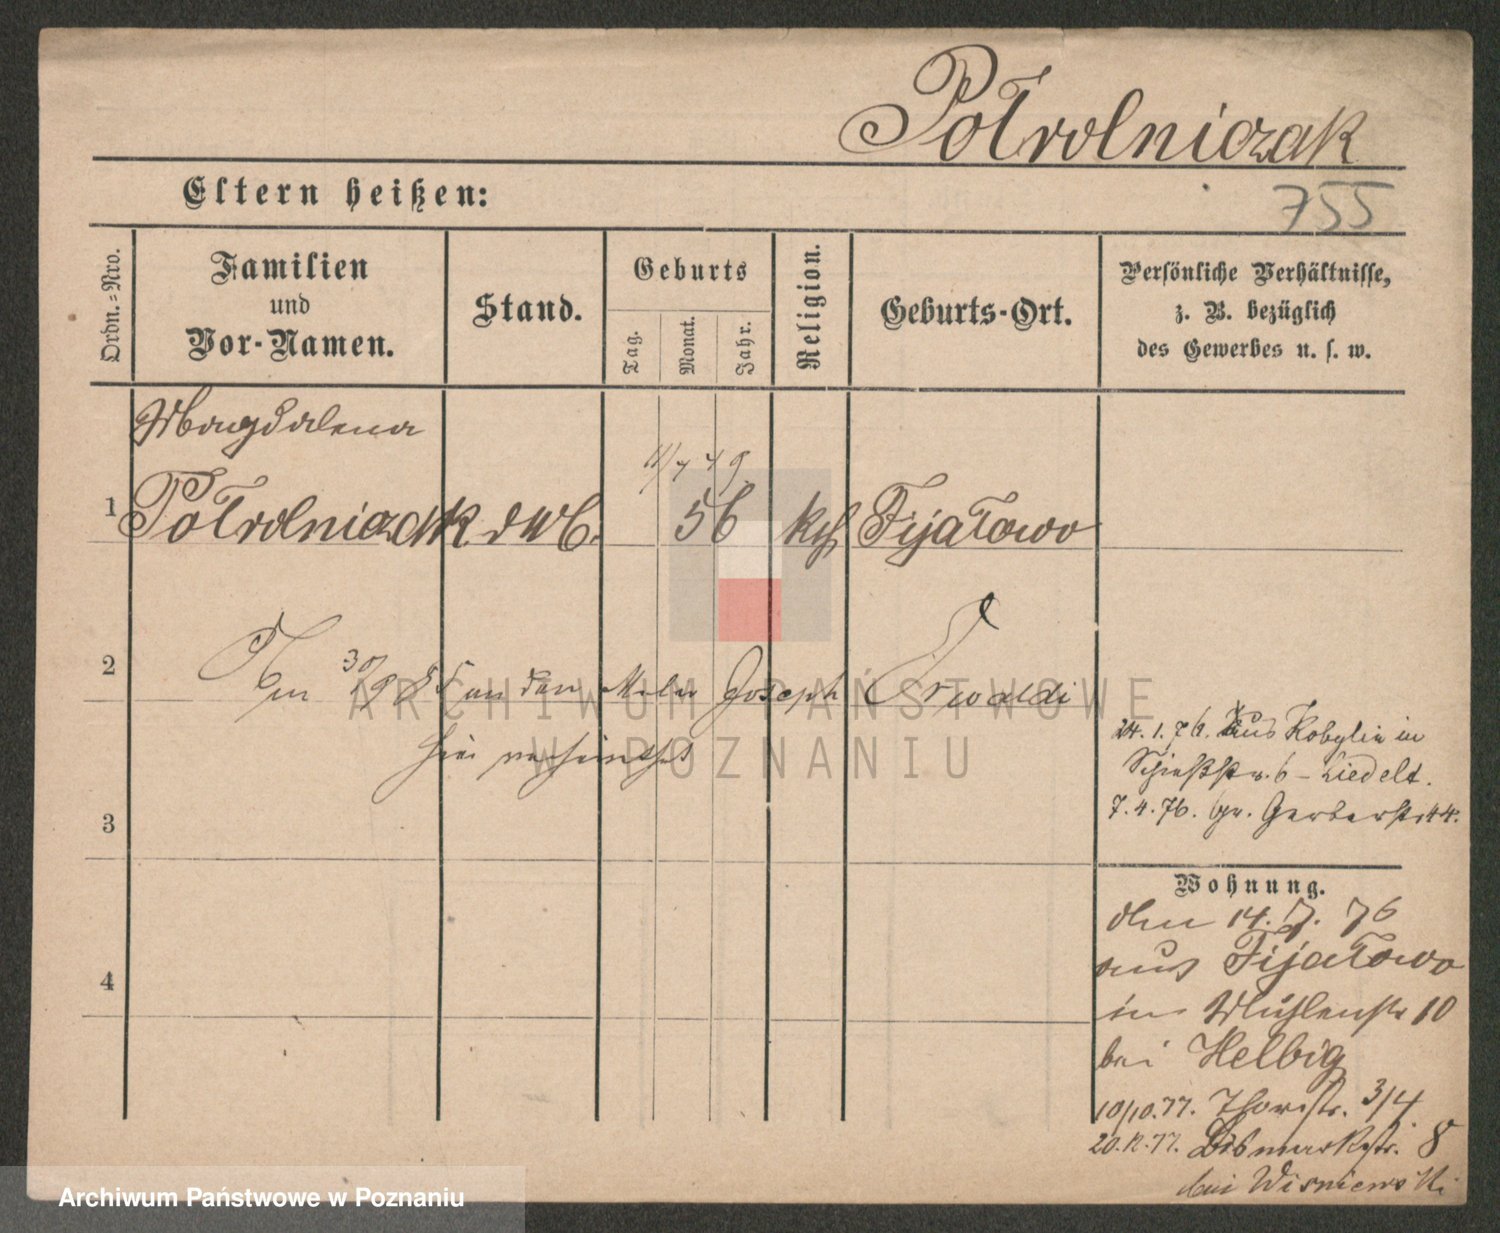 Połrolniczak
Eltern heißen:
755
Ordn.=Nro.
Familien
und
Vor-Namen.
Stand.
Geburts
Tag.
Monat.
Jahr.
Religion.
Geburts-Ort.
Persönliche Verhältnisse,
z. B. bezüglich
des Gewerbes u. s. w.
Magdalena
11/4 49
1 Połrolniczak d W b. 56 kth Fijałowo
2
30/9 85 an den Maler Joseph Orwaldi
hier verheirathet
ARCHIWUM PAŃSTWOWE
W POZNANIU
24. 1. 76. aus Kobylin in
Schießstr. 6 – Liedelt.
3
7. 4. 76. Gr. Gerberstr 44.
Wohnung.
den 14. 7. 76
aus Fijałowo
4
in Mühlenstr 10
bei Helbig
10/10. 77. Thorstr. 3/4
20. 12. 77. Bismarkstr. 8
bei Wisniewski
Archiwum Państwowe w Poznaniu